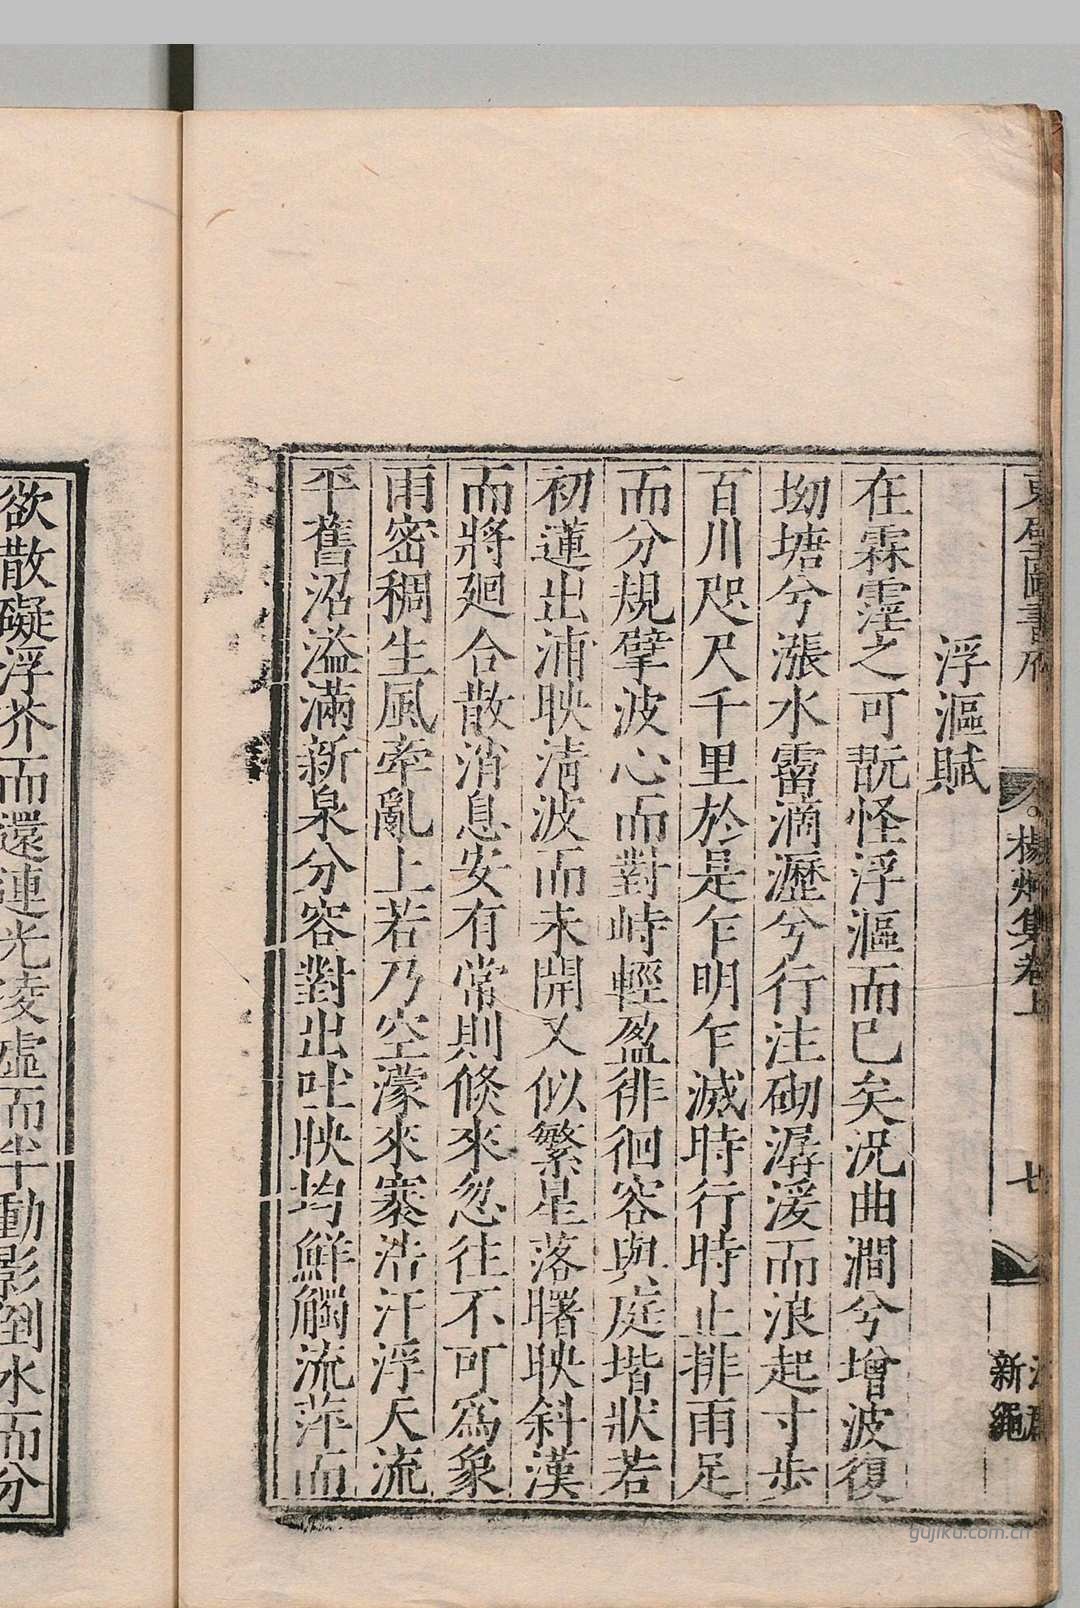 東壁圖書府
楊炯集卷上
七
新繩
浮漚賦
在霖霪之可翫怪浮漚而已矣況曲澗兮增波復
坳塘兮漲水霤滴瀝兮行注砌潺湲而浪起寸步
百川咫尺千里於是乍明乍滅時行時止排雨足
而分規擘波心而對峙輕盈徘徊容與庭堦狀若
初蓮出浦映淸波而未開又似繁星落曙映斜漢
而將廻合散消息安有常則倏來忽往不可爲象
雨密稠生風牽亂上若乃空濛來褰浩汗浮天流
平舊沼溢滿新泉分容對出吐映均鮮觸流萍而
欲散礙浮芥而還連光凌虛而半動影倒水而分
gujiku.com.cn